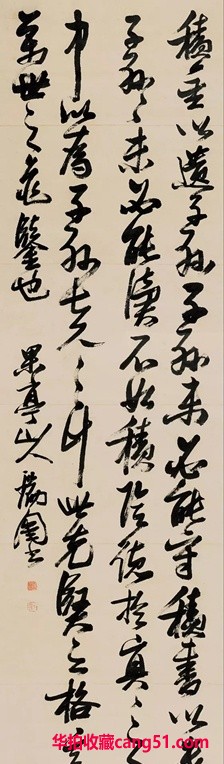 積金以遺子孫子孫未必能守積書以
子孫〻未必能讀不如積陰德於冥〻之
中以為子孫長久之計此先賢之格
萬世之龜鑒也
果亭山人
华拍收藏cang51.com